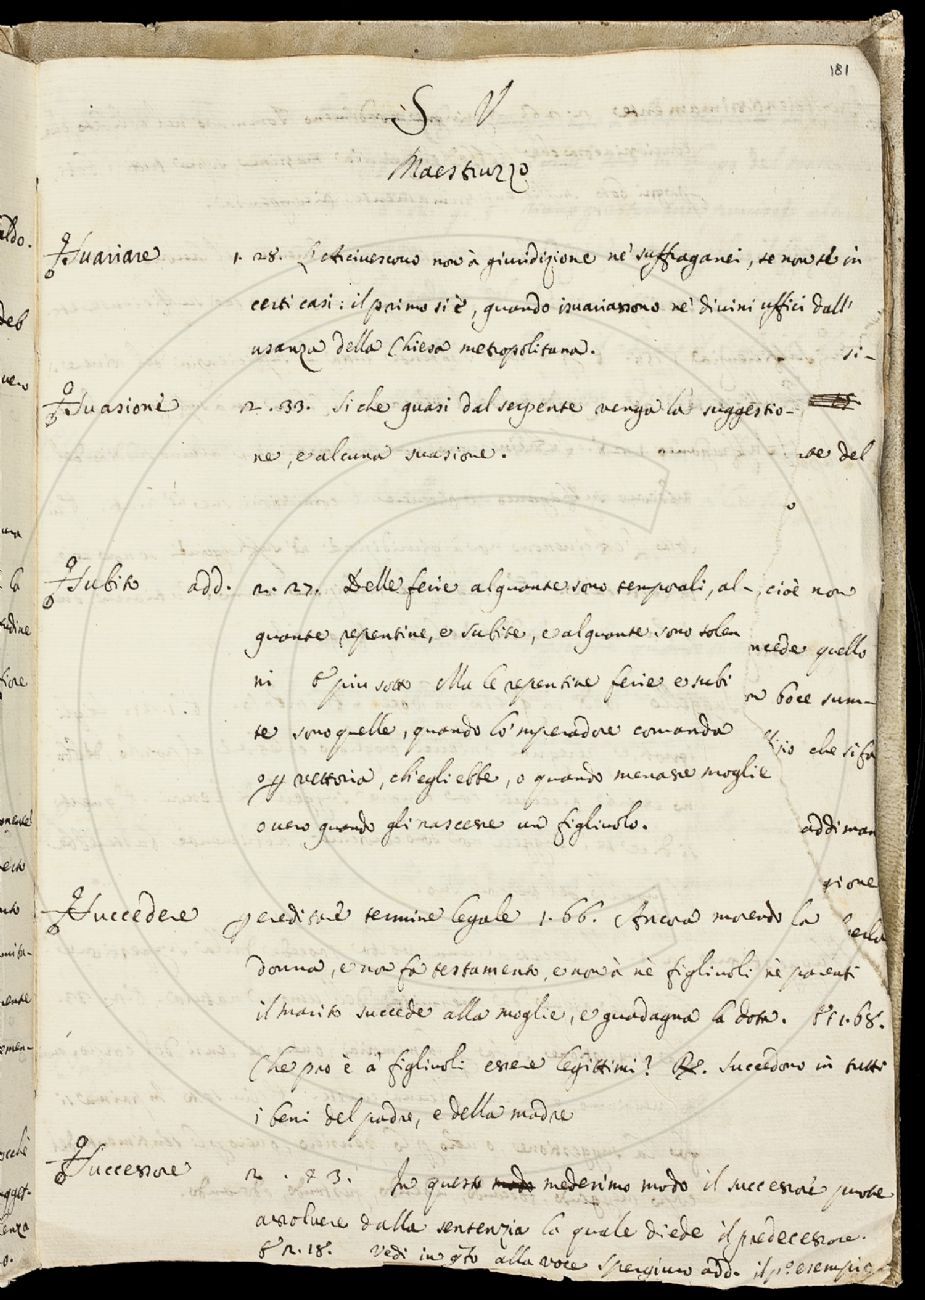 181
S V
Maestruzzo
Suariare 1. 28. L'Arcivescovo non à giuridizione ne' suffraganei, se non se in
certi casi: il primo si è, quando isvariassono ne' divini uffici dall'
usanza della Chiesa metropolitana.
Suasione 2. 33. Siche quasi dal serpente venga la suggestio-
ne, e alcuna suasione.
Subito add. 2. 27. Delle ferie alquante sono temporali, al-
quante repentine, e subite, e alquante sono solen
ni & piu sotto Ma le repentine ferie e subi
te sono quelle, quando lo 'mperadore comanda
vettoria, ch'egli ebbe, o quando menasse moglie
overo quando gli nascesse un figliuolo.
Succedere ereditare termine legale 1. 66. Ancora morendo la
donna, e non fa testamento, e non à nè figliuoli nè parenti
il marito succede alla moglie, e guadagna la dota. & 1. 68.
Che pro è a' figliuoli essere legittimi? R. Succedono in tutti
i beni del padre, e della madre
Successore 2. 3. In questo medesimo modo il successore puote
assolvere dalla sentenzia la quale diede il predecessore.
& 2. 18. Vedi in qto alla voce Spergiuro add. il po esempio
si-
del
cioè non
quello
boce
che si fa
addiman
gione